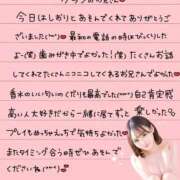 今日はしおりとあそんでくれてありがとうご
ざいました(''ω'')最初の電話の時はびっくりした
よ~(笑)歯みがき中でよかった！(笑)たくさんお話
してくれてたくさんニコニコしてくれるお兄さんでよかった
香水のいい匂いのくだりも最高でした(''ω'')自己肯定感
高い人大好きだから一緒に居てずっと楽しかった
プレイもめっちゃんちで気持ちよかった
またタイミング合う時ぜひあそんで
くださいね(''ω'')